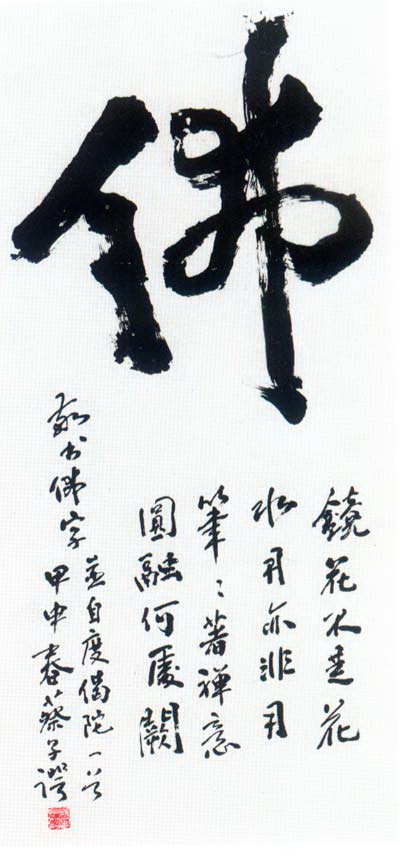 佛
鏡花不是花
水月亦非月
筆々著禪意
圓融何處闕
敬书佛字
並自度偈陀一首
甲申春蔡子諤